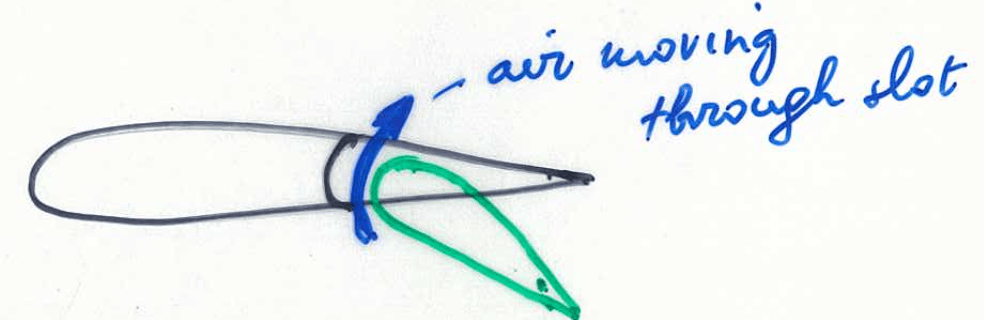 air moving
through slot